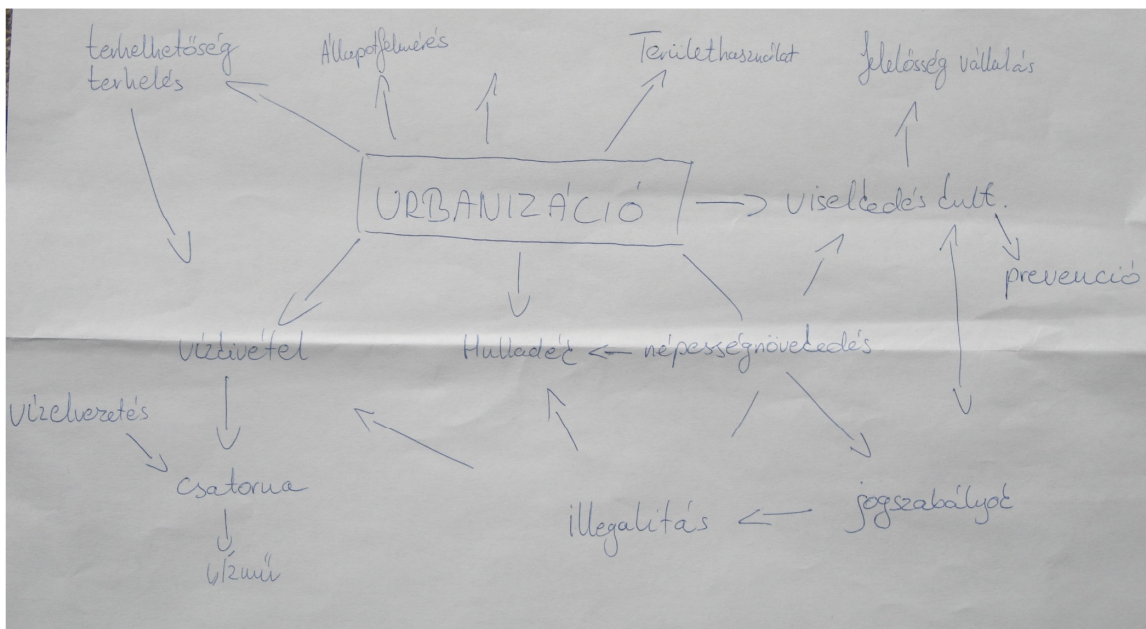 terhelhetőség
terhelés
Állapotfelmérés
Területhasználat
felelősség vállalás
URBANIZÁCIÓ
viselkedés kult.
prevenció
vízkivétel
Hulladék
népességnövekedés
vízelvezetés
csatorna
illegalitás
jogszabályok
vízmű